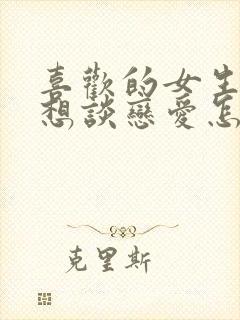 喜歡的女生
想談戀愛怎
克里斯